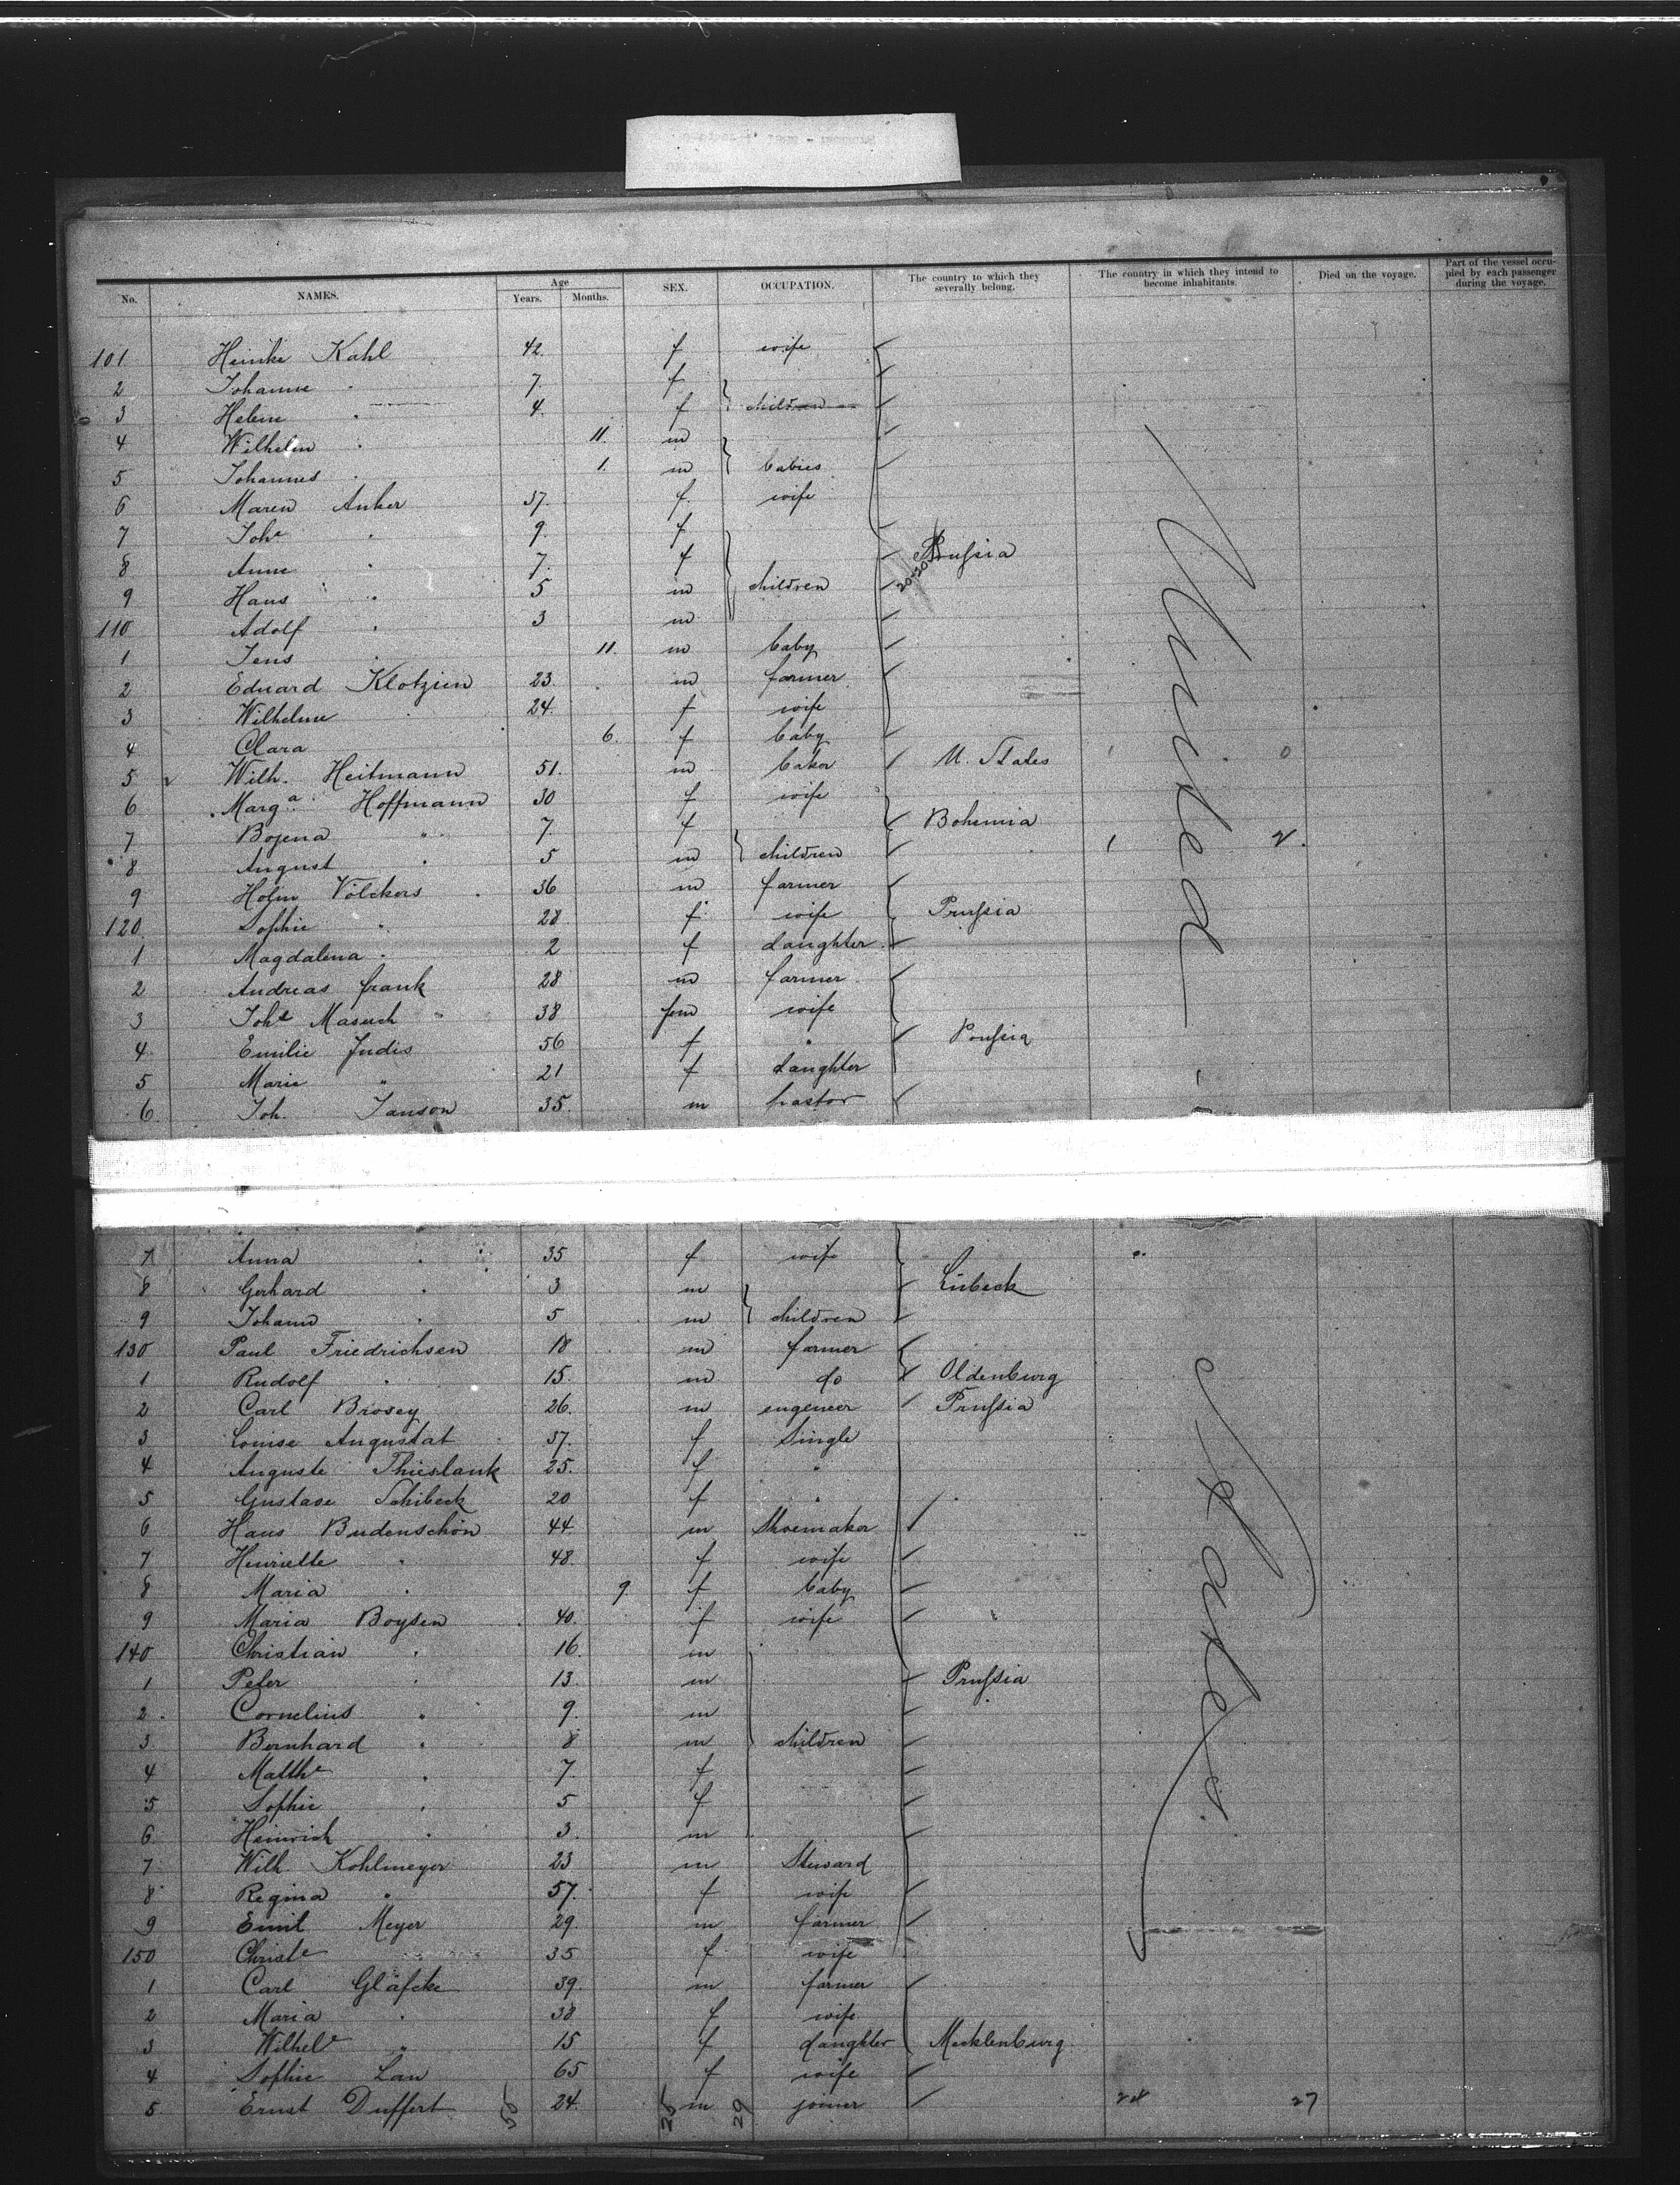 No. NAMES. Age Years. Months. SEX. OCCUPATION. The country to which they severally belong. The country in which they intend to become inhabitants. Died on the voyage. Part of the vessel occupied by each passenger during the voyage.
101. Heinke Kahl 42. f wife
2 Johanne " 7. f
3 Helene " 4. f children
4 Wilhelm " 11. m
5 Johannes " 1. m babies
6 Maren Anker 37. f. wife
7 Johe " 9. f
8 Anne " 7. f Prussia
9 Hans " 5 m children
110 Adolf " 3 m
1 Jens 11. m baby
2 Eduard Klotzien 23. m farmer
3 Wilhelme " 24. f wife
4 Clara 6. f baby
5 Wilh. Heitmann 51. m baker U. States
6 Marga. Hoffmann 30 f wife
7 Bozena " 7. f Bohemia
8 August " 5 m children 2.
9 Holm Völckers 36 m farmer
120. Sophie " 28 f. wife Prussia
1 Magdalena " 2 f daughter
2 Andreas Frank 28 m farmer
3 Johe Masuch " 38 fm wife
4. Emilie Judis 56 f " Prussia
5 Marie " 21 f daughter
6. Joh. Janson 35. m pastor
United
7 Anna " 35 f wife
8 Gerhard " 3 m Lübeck
9 Johann " 5 m children
130 Paul Friedrichsen 18 m farmer
1 Rudolf " 15. m do Oldenburg
2 Carl Brosey 26. m engeneer Prussia
3 Louise Augustat 37. f Single
4 Auguste Thieslank 25. f "
5 Gustave Schibeck 20 f "
6 Hans Budenschön 44. m Shoemaker
7 Henriette " 48. f wife
8 Maria " 9. f baby
9 Maria Boysen 40. f wife "
140 Christian " 16. m
1 Peter " 13. m Prussia
2. Cornelius " 9. m
3. Bernhard " 8 m children
4 Matthe " 7. f
5 Sophie " 5 f
6. Heinrich " 3. m
7 Wilh. Kohlmeyer 23 m Steward
8 Regina " 57. f wife
9 Emil Meyer 29. m farmer
150 Christe 35 f wife
1 Carl Gläfcke 39. m farmer
2 Maria " 38 f wife
3 Wilhele " 15 f daughter Mecklenburg
4 Sophie Lau 65 f wife
5. Ernst Duffert 24. m joiner 27
States.
25
29